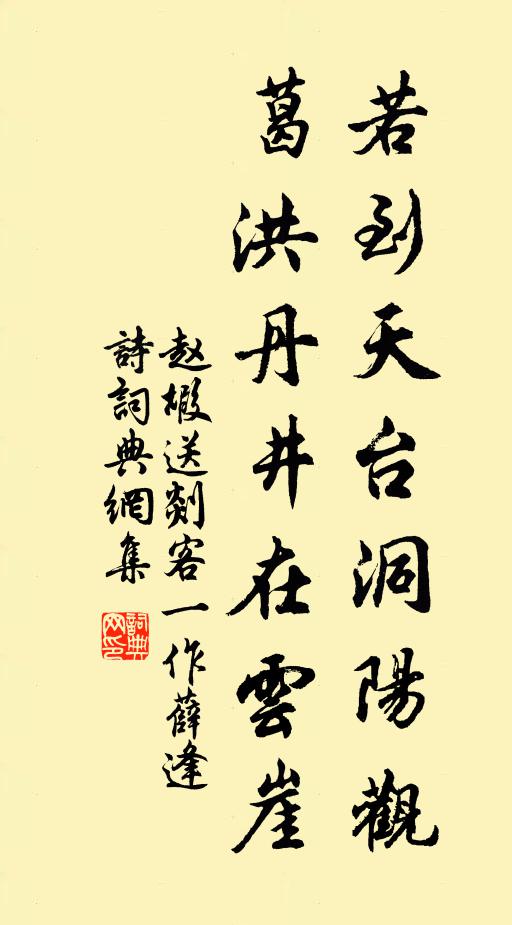 若到天台洞陽觀
葛洪丹井在雲崖
赵椵送剡客一作薛逢
詩詞典網集
詞典
网印